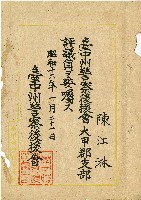 陳江淋
臺中州警察後援會大甲郡支部
評議員ヲ委囑ス
昭和十六年一月二十一日
臺中州警察後援會